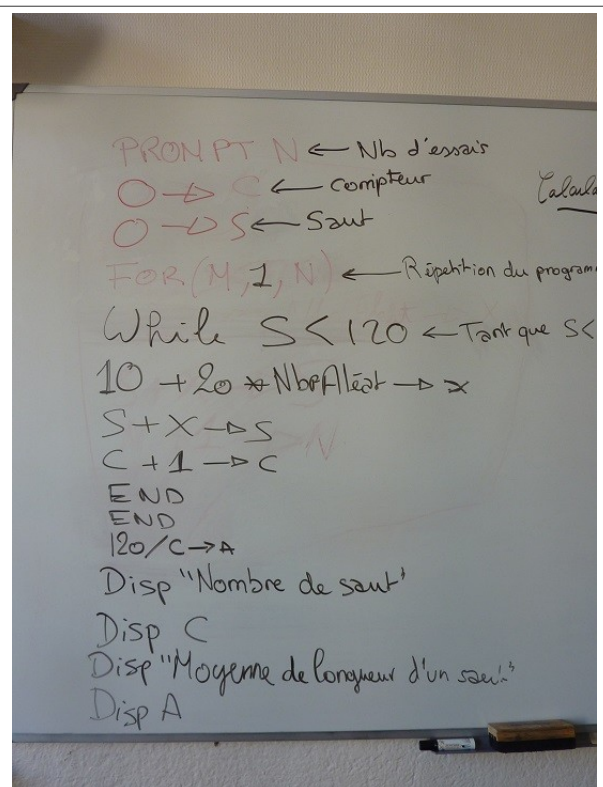 PROMPT N ← Nb d'essais
O → C ← Compteur
O → S ← Saut
Calcula
FOR(M,1,N) ← Répétition du programm
While S < 120 ← Tant que S<
10 + 20 * NbrAléat → x
S + X → S
C + 1 → C
END
END
120/C → A
Disp "Nombre de saut"
Disp C
Disp "Moyenne de longueur d'un saut"
Disp A